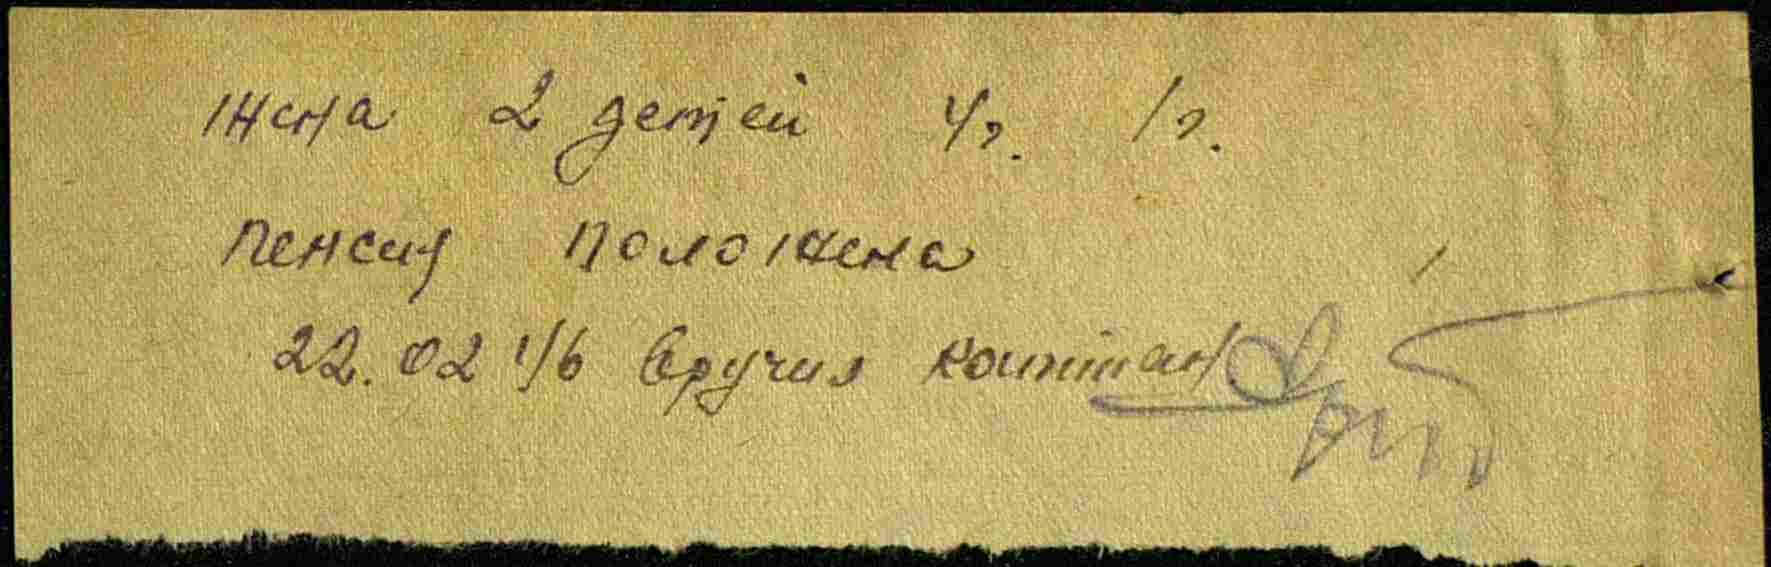 жена 2 детей 4г. 1г.
пенсия положена
22.02 вручил капитан